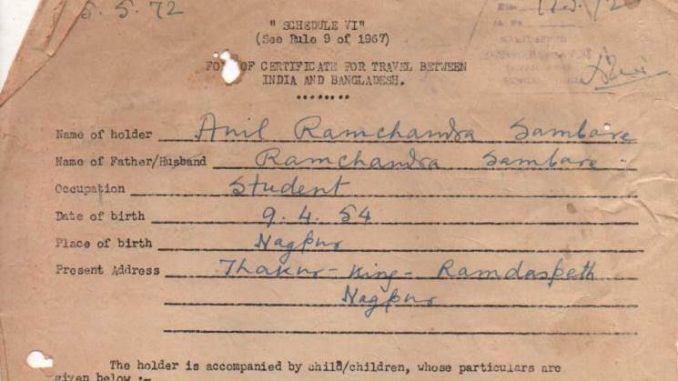 5.5.72
" SCHEDULE VI"
(See Rule 9 of 1967)
OF CERTIFICATE FOR TRAVEL BETWEEN
INDIA AND BANGLADESH.
Name of holder Anil Ramchandra Sambare
Name of Father/Husband Ramchandra Sambare
Occupation Student
Date of birth 9.4.54
Place of birth Nagpur
Present Address Thakur-King-Ramdaspeth
Nagpur
The holder is accompanied by child/children, whose particulars are
given below :-